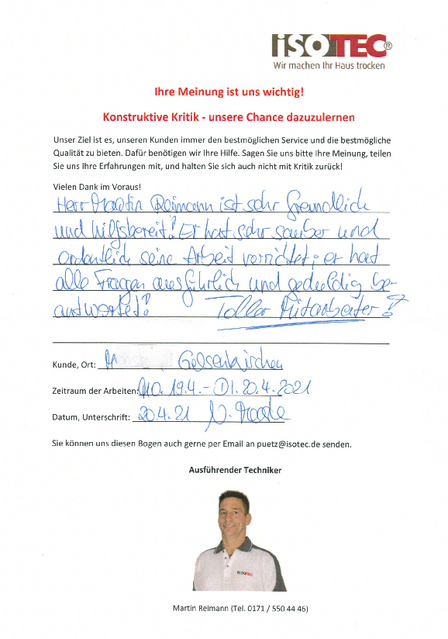 ISOTEC®
Wir machen Ihr Haus trocken
Ihre Meinung ist uns wichtig!
Konstruktive Kritik - unsere Chance dazuzulernen
Unser Ziel ist es, unseren Kunden immer den bestmöglichen Service und die bestmögliche
Qualität zu bieten. Dafür benötigen wir Ihre Hilfe. Sagen Sie uns bitte Ihre Meinung, teilen
Sie uns Ihre Erfahrungen mit, und halten Sie sich auch nicht mit Kritik zurück!
Vielen Dank im Voraus!
Herr Martin Reimann ist sehr freundlich
und hilfsbereit! Er hat sehr sauber und
ordentlich seine Arbeit verrichtet, er hat
alle Fragen ausführlich und geduldig be-
antwortet!
Toller Mitarbeiter!
Kunde, Ort: Gelsenkirchen
Zeitraum der Arbeiten: Mo. 19.4. - Di. 20.4.2021
Datum, Unterschrift: 20.4.21
Sie können uns diesen Bogen auch gerne per Email an puetz@isotec.de senden.
Ausführender Techniker
ISOTEC
Martin Reimann (Tel. 0171 / 550 44 46)